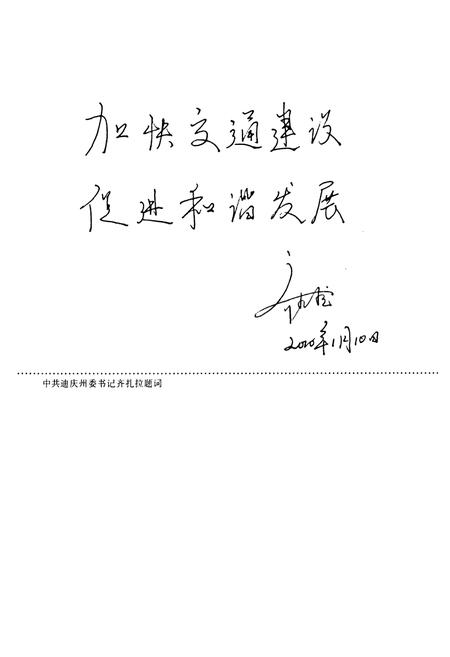 加快交通建设
促进和谐发展
齐扎拉
2010年1月10日
中共迪庆州委书记齐扎拉题词